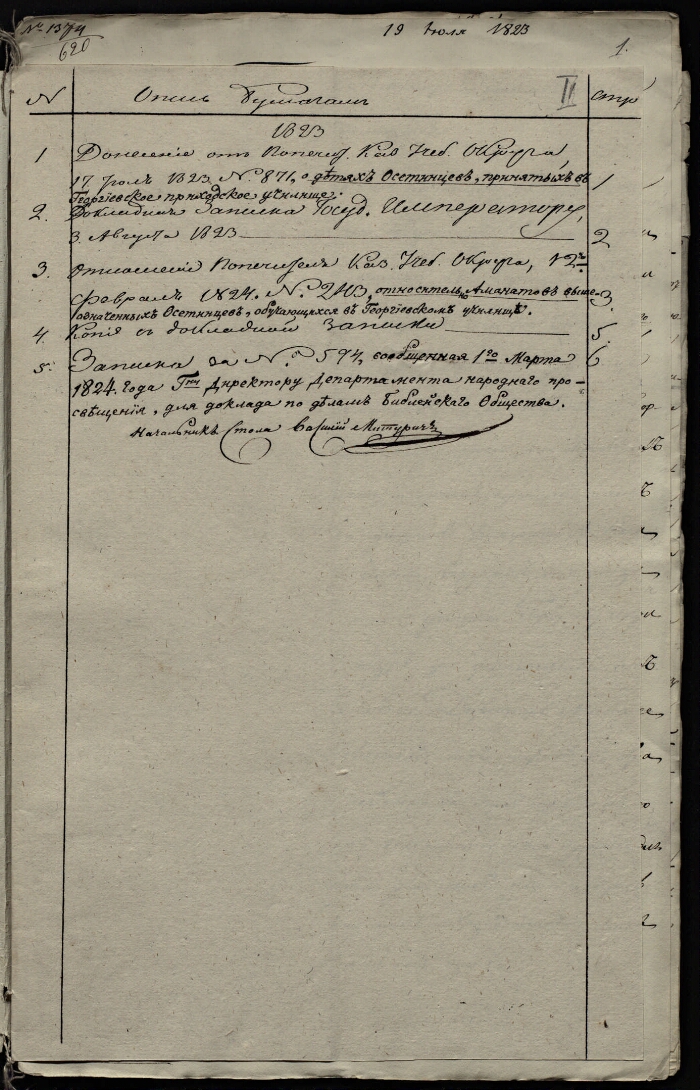 № 1374
620
19 Июля 1823
1.
N Опись Бумагамъ II стр
1823
1 Донесеніе отъ Попечит. Каз. Учеб. Округа,
17 Іюля 1823 N. 871, о дѣтяхъ Осетинцевъ, принятыхъ въ 1
Георгіевское приходское училище.
2. Докладная Записка Госуд. Императору,
3. Августа 1823 2
3. Отношеніе Попечителя Каз. Учеб. Округа, 12го
Февраля 1824. N. 2403, относительно Аманатовъ выше- 3.
означенныхъ Осетинцевъ, обучающихся въ Георгіевскомъ училищѣ.
4. Копія съ докладной Записки 5.
5. Записка за N. 574, сообщенная 1го Марта 6
1824. года Гну Директору Департамента народнаго про-
свѣщенія, для доклада по дѣламъ Библейскаго Общества.
Начальникъ Стола Василій Митуричъ